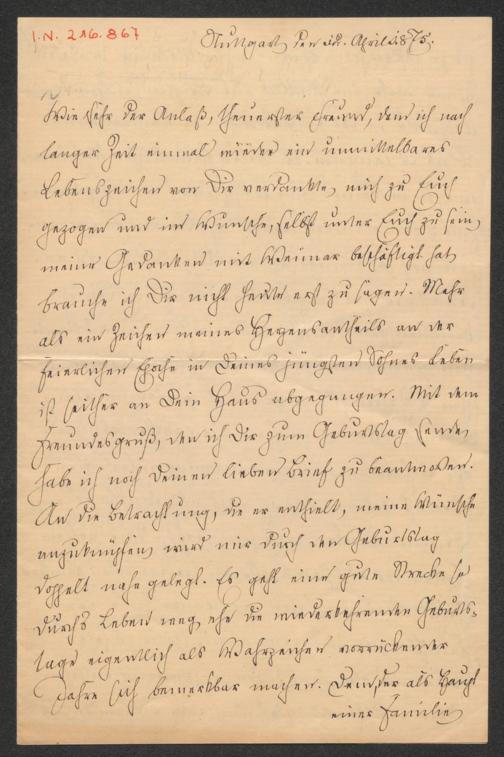 I.N. 216.867
Stuttgart, den 12. April 1875.
Wie sehr der Anlaß, theuerster Freund, dem ich nach
langer Zeit einmal wieder ein unmittelbares
Lebenszeichen von Dir verdankte, mich zu Euch
gezogen und im Wunsche, selbst unter Euch zu sein,
meine Gedanken mit Weimar beschäftigt hat,
brauche ich Dir nicht heute erst zu sagen. Mehr
als ein Zeichen meines Herzensantheils an der
feierlichen Epoche in Deines jüngsten Sohnes Leben
ist seither an Dein Haus abgegangen. Mit dem
Freundesgruß, den ich Dir zum Geburtstag sende,
habe ich noch Deinen lieben Brief zu beantworten.
An die Betrachtung, die er enthielt, meine Wünsche
anzuknüpfen, wird mir durch den Geburtstag
doppelt nahe gelegt. Es geht eine gute Strecke so
durch's Leben weg, ehe die wiederkehrenden Geburts-
tage eigentlich als Wahrzeichen vorrückender
Jahre sich bemerkbar machen. Denn, der als Haupt
einer Familie